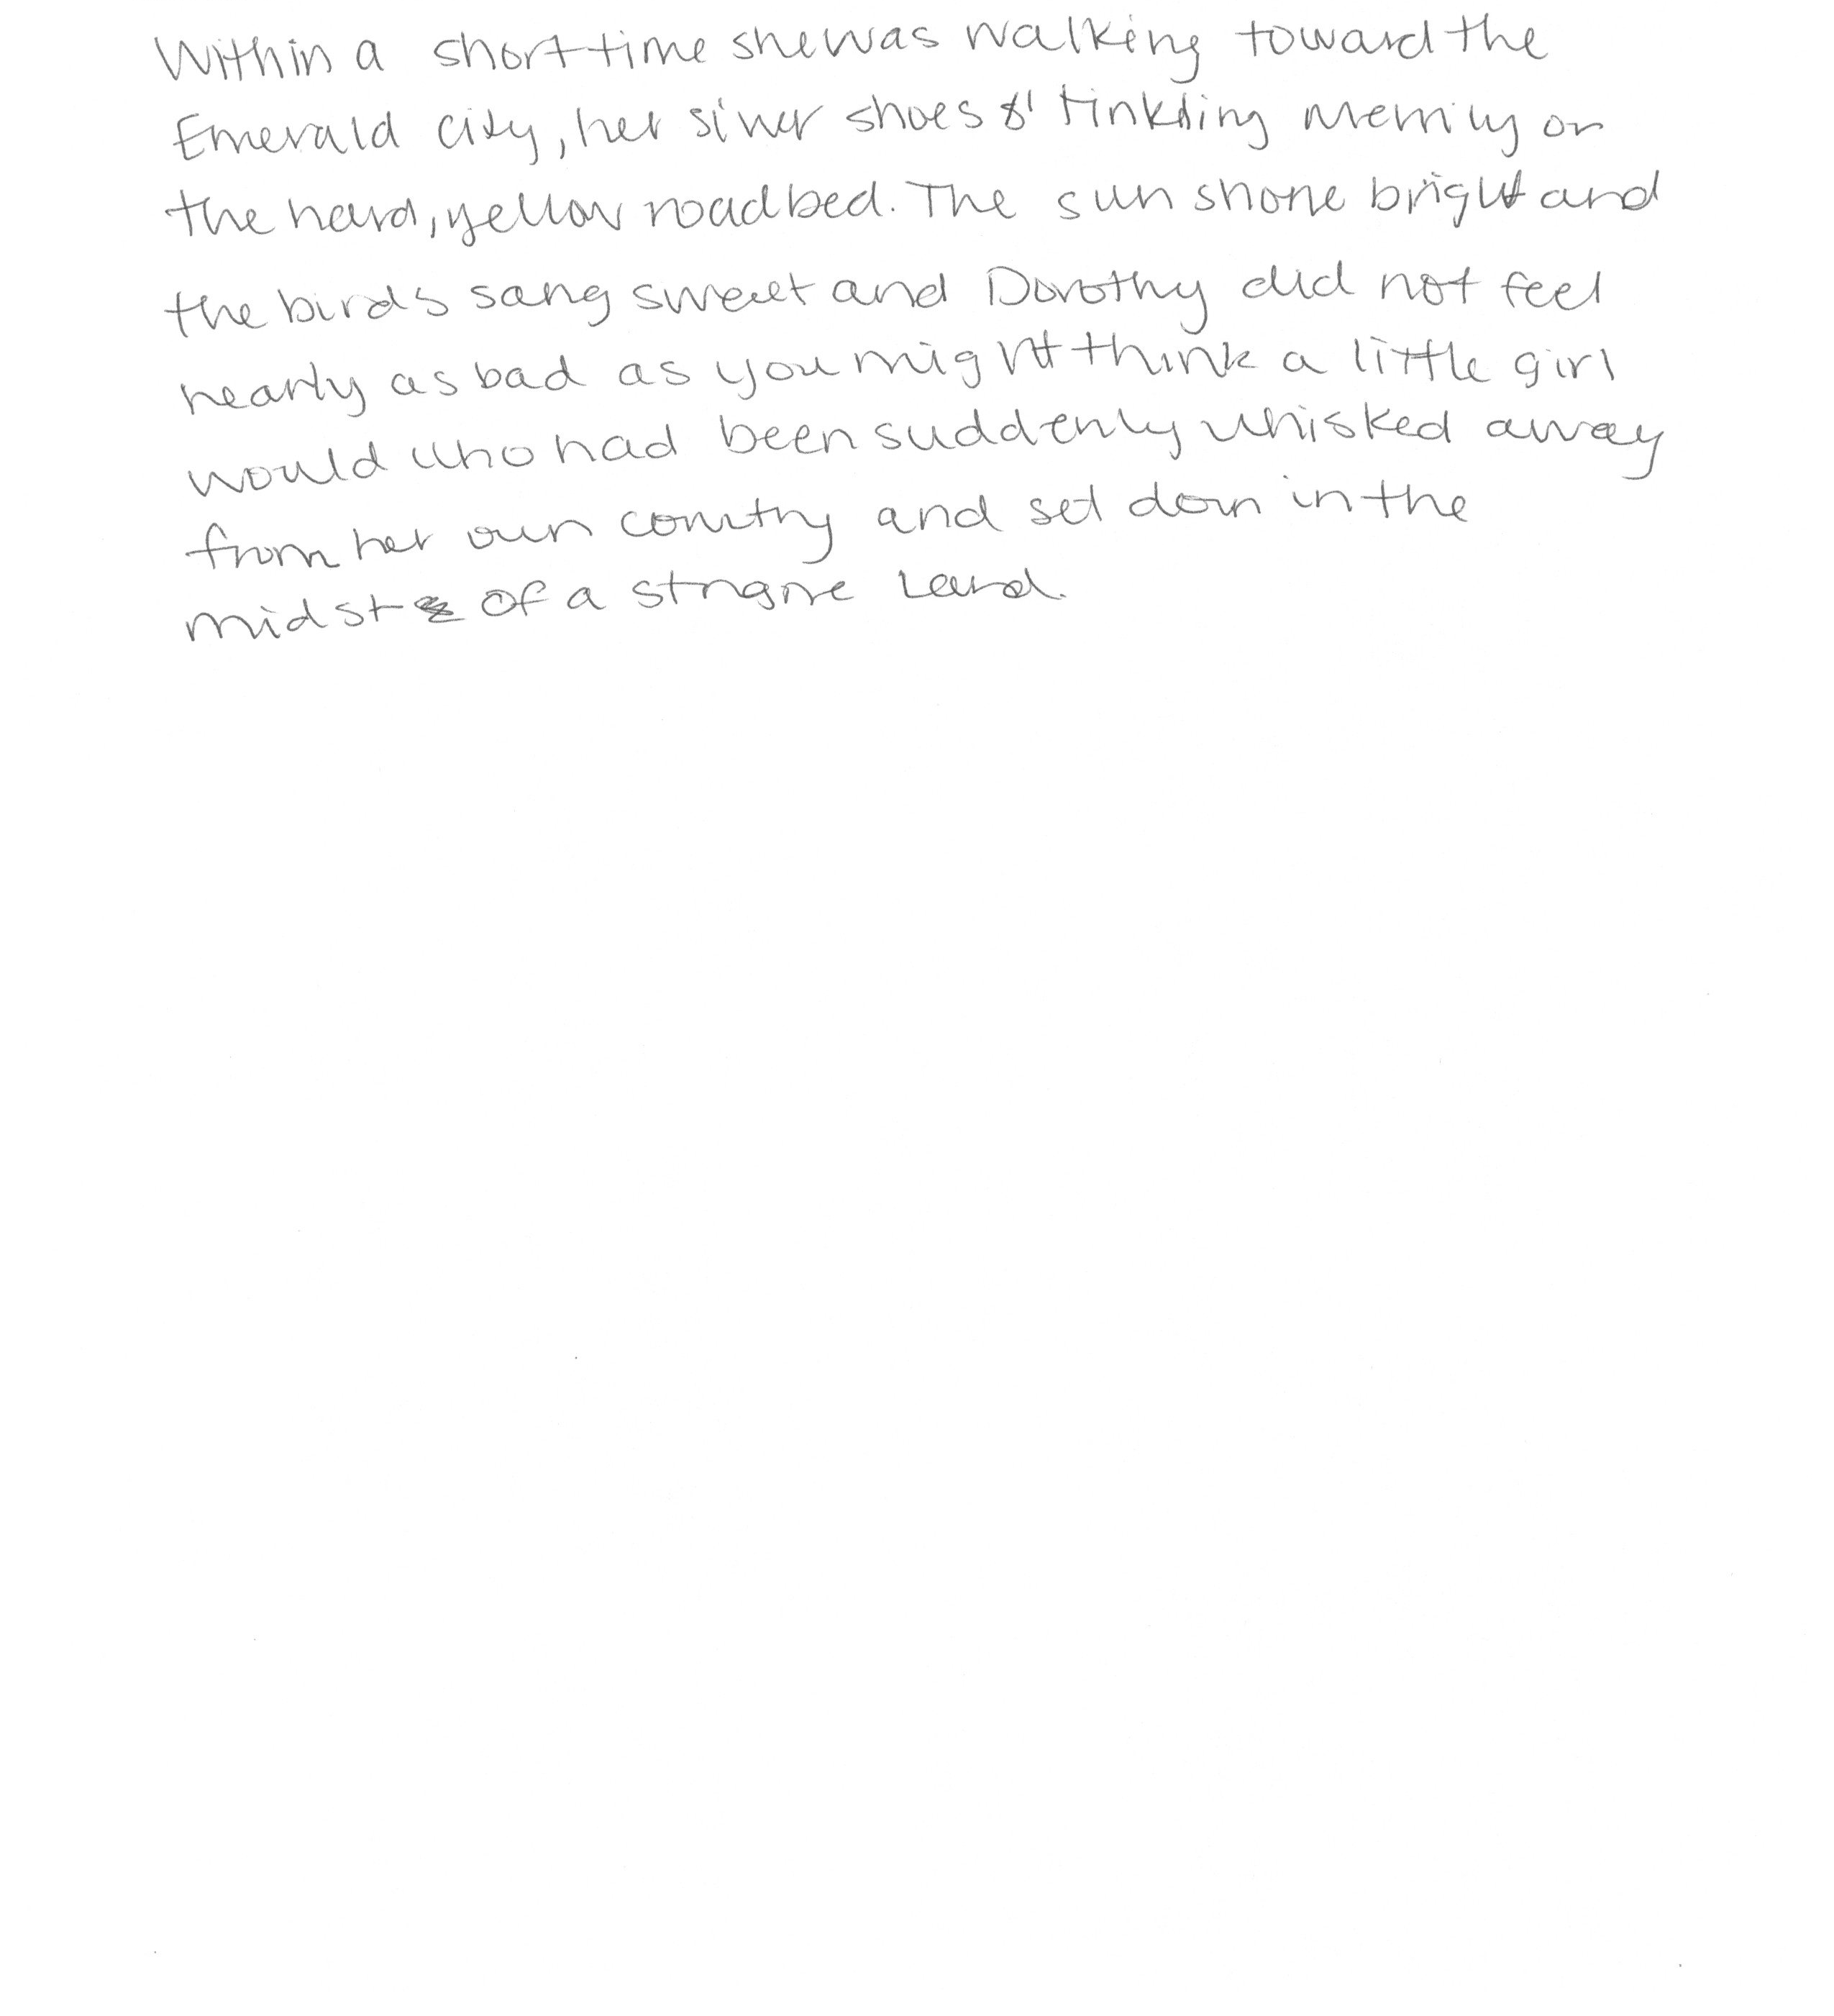 Within a short time she was walking toward the
Emerald City, her silver shoes tinkling merrily on
the hard, yellow roadbed. The sun shone bright and
the birds sang sweet and Dorothy did not feel
nearly as bad as you might think a little girl
would who had been suddenly whisked away
from her own country and set down in the
midst of a strange land.